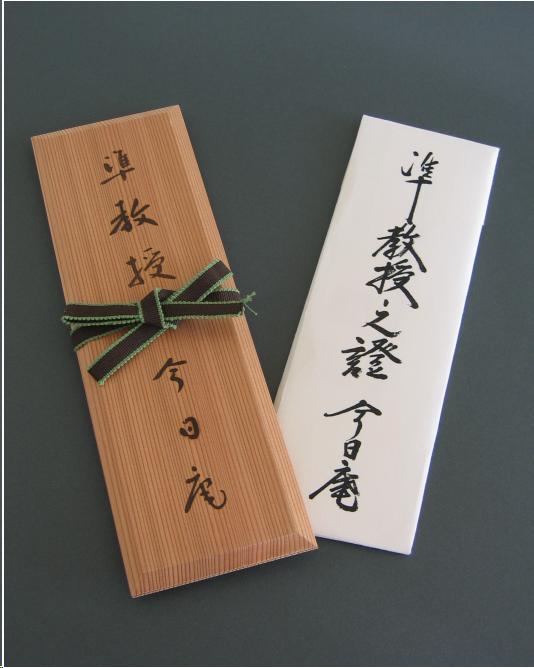 準教授 今日庵
準教授之證 今日庵